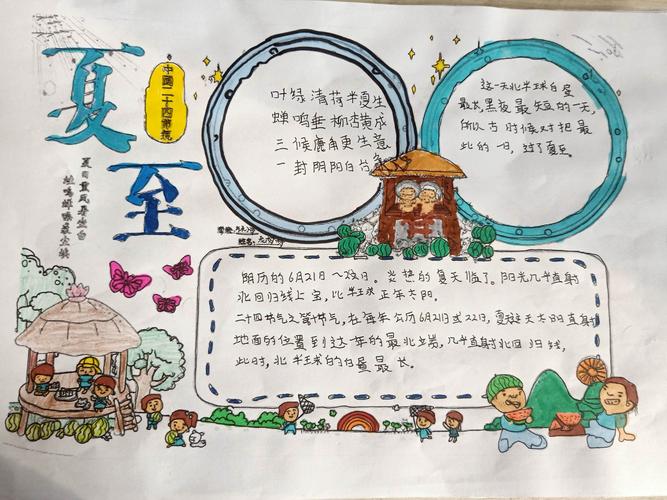 夏至
中国二十四节气
叶绿清荷半夏生
蝉鸣垂柳杏黄成
三候鹿角更生意
一封阴阳白
这一天北半球白昼
最长,黑夜最短的一天,
所以古时候对把最
北的一日,过了夏至。
学校:
姓名:
阴历的6月21日~22日。炎热的夏天临了。阳光几乎直射
北回归线上宝,北半球正午太阳。
二十四节气之第节气,在每年公历6月21日或22日,夏至这天太阳直射
地面的位置到达一年的最北端,几乎直射北回归线,
此时,北半球的白昼最长。